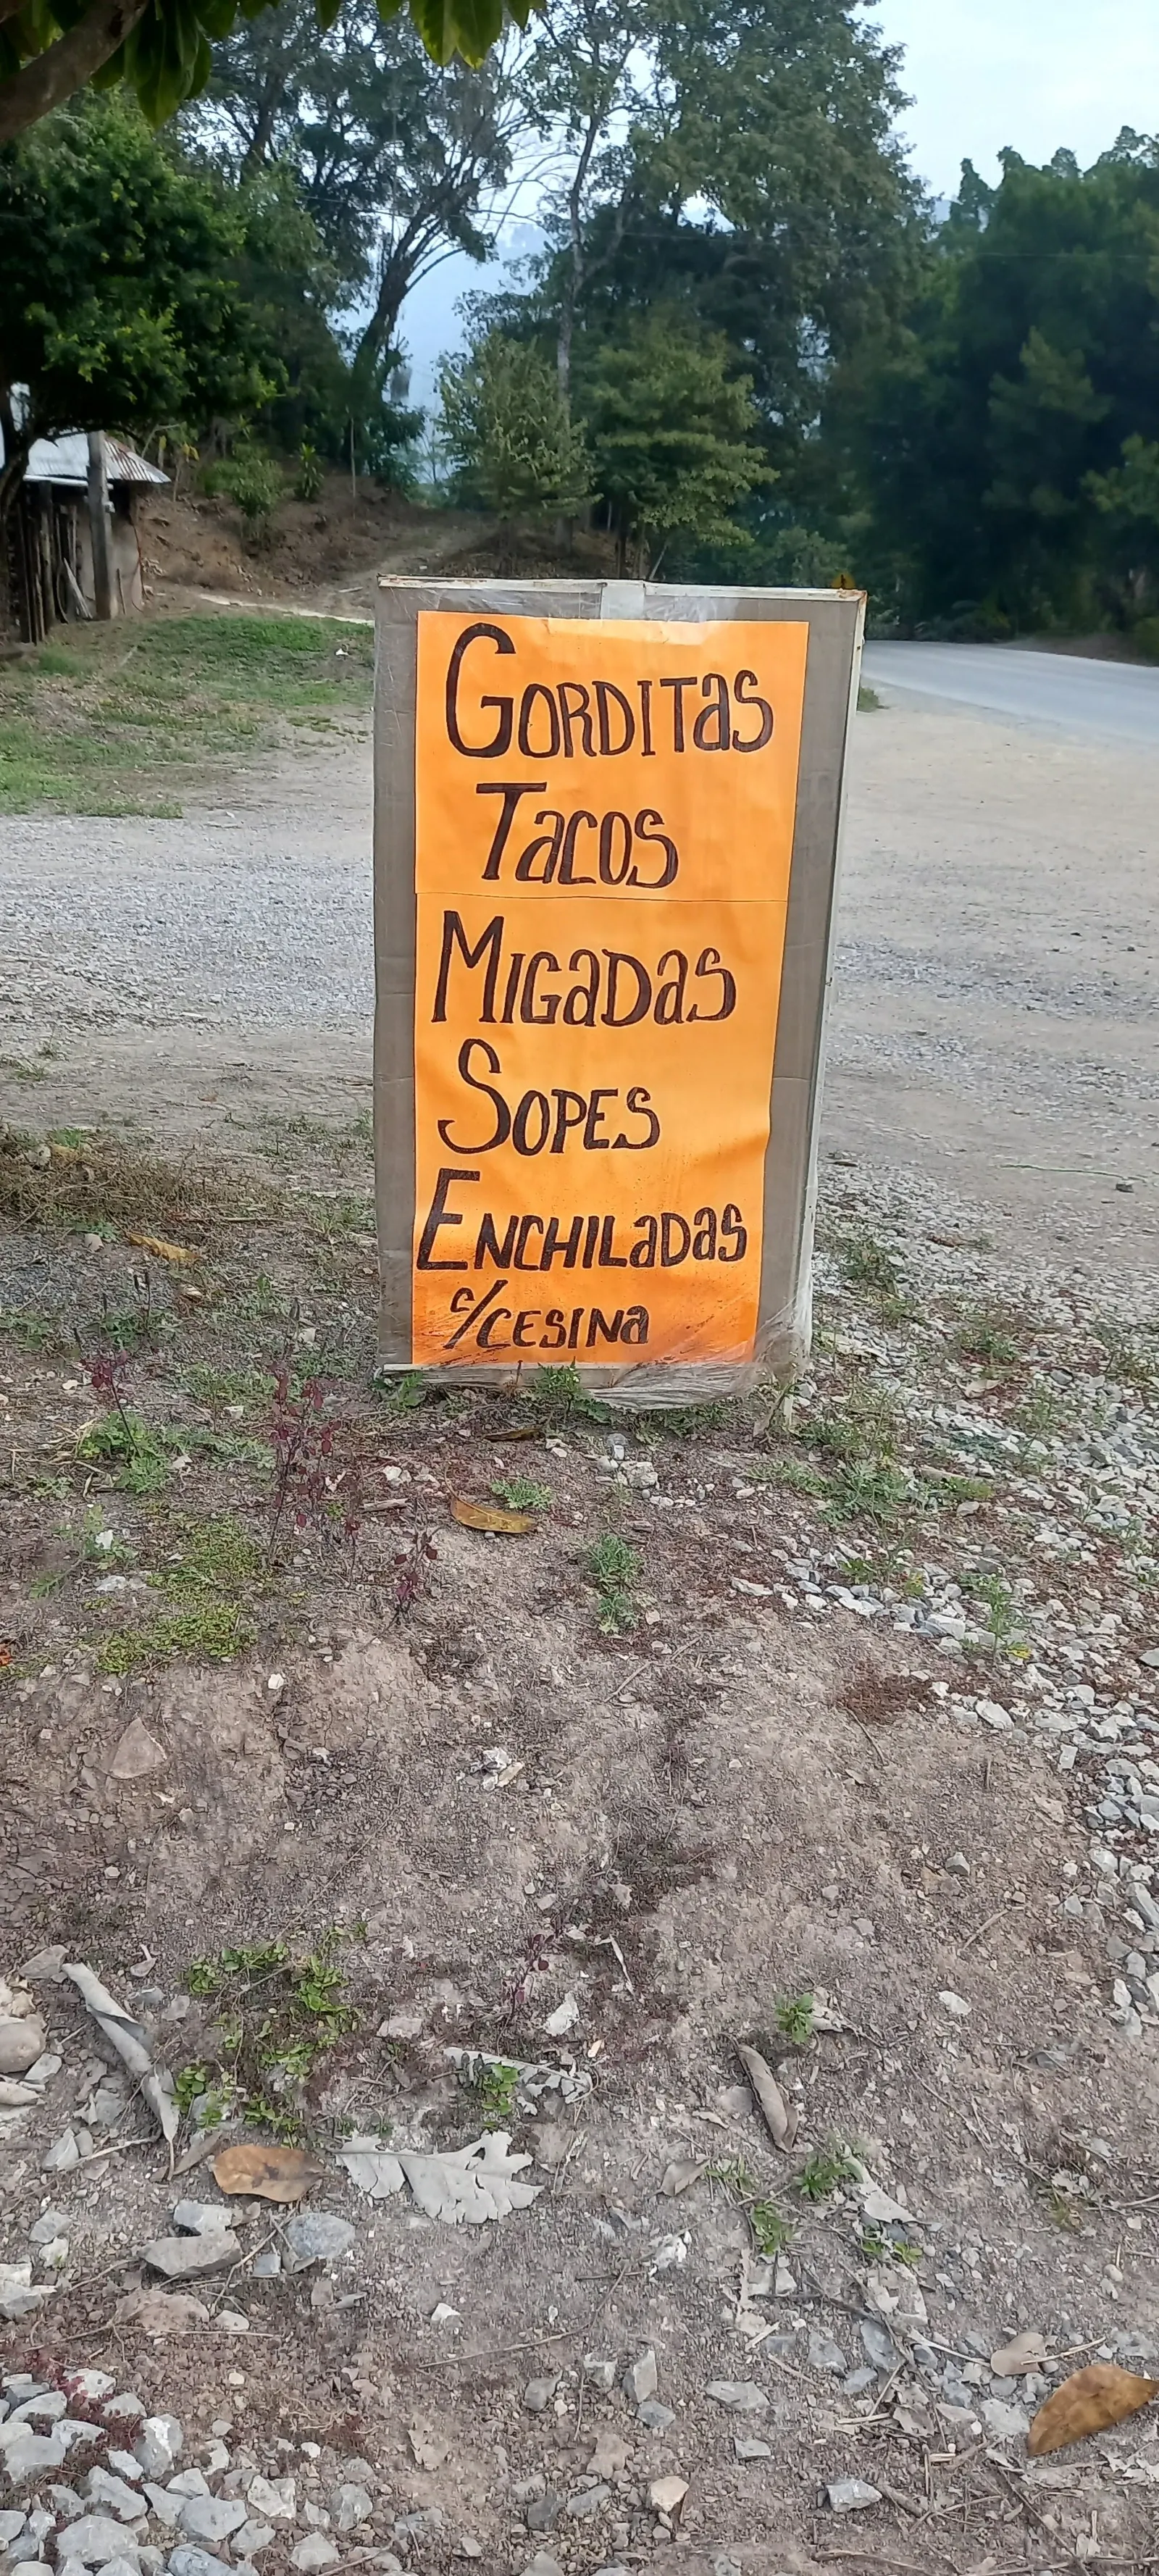 GORDITas
Tacos
MIGaDas
SOPES
ENCHILaDas
c/CESINa